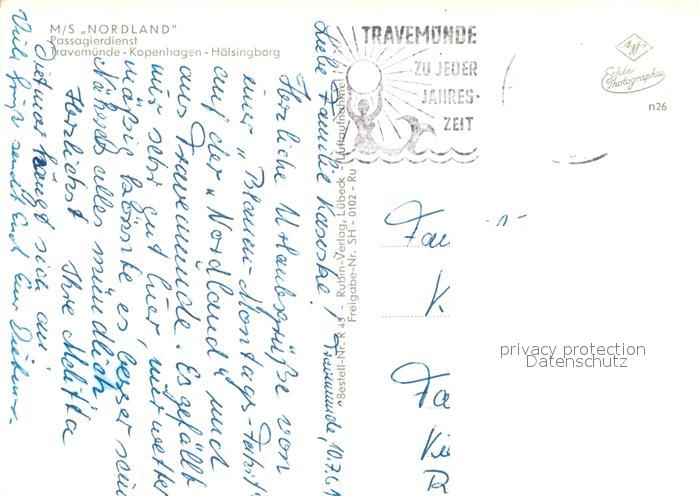 M/S „NORDLAND"
Passagierdienst
Travemünde - Kopenhagen - Hälsingborg
TRAVEMÜNDE
ZU JEDER
JAHRES-
ZEIT
Echte
Photographie
n26
Bestell-Nr. R 45 - Rubin-Verlag, Lübeck - Luftaufnahme
Freigabe-Nr. SH - 0102 - Ru
Travemünde, 10.7.61
Liebe Familie
Herzliche Urlaubsgrüße von
einer „Blauen-Montags-Fahrt"
auf der „Nordland" und
aus Travemünde. Es gefällt
mir sehr gut hier, nur wetter
mäßig könnte es besser sein
Näheres alles mündlich
Herzlichst Ihre Melitta
Dietmar hängt sich an
Viele Grüße sendet Euch Euer
Fam
K
privacy protection
Datenschutz